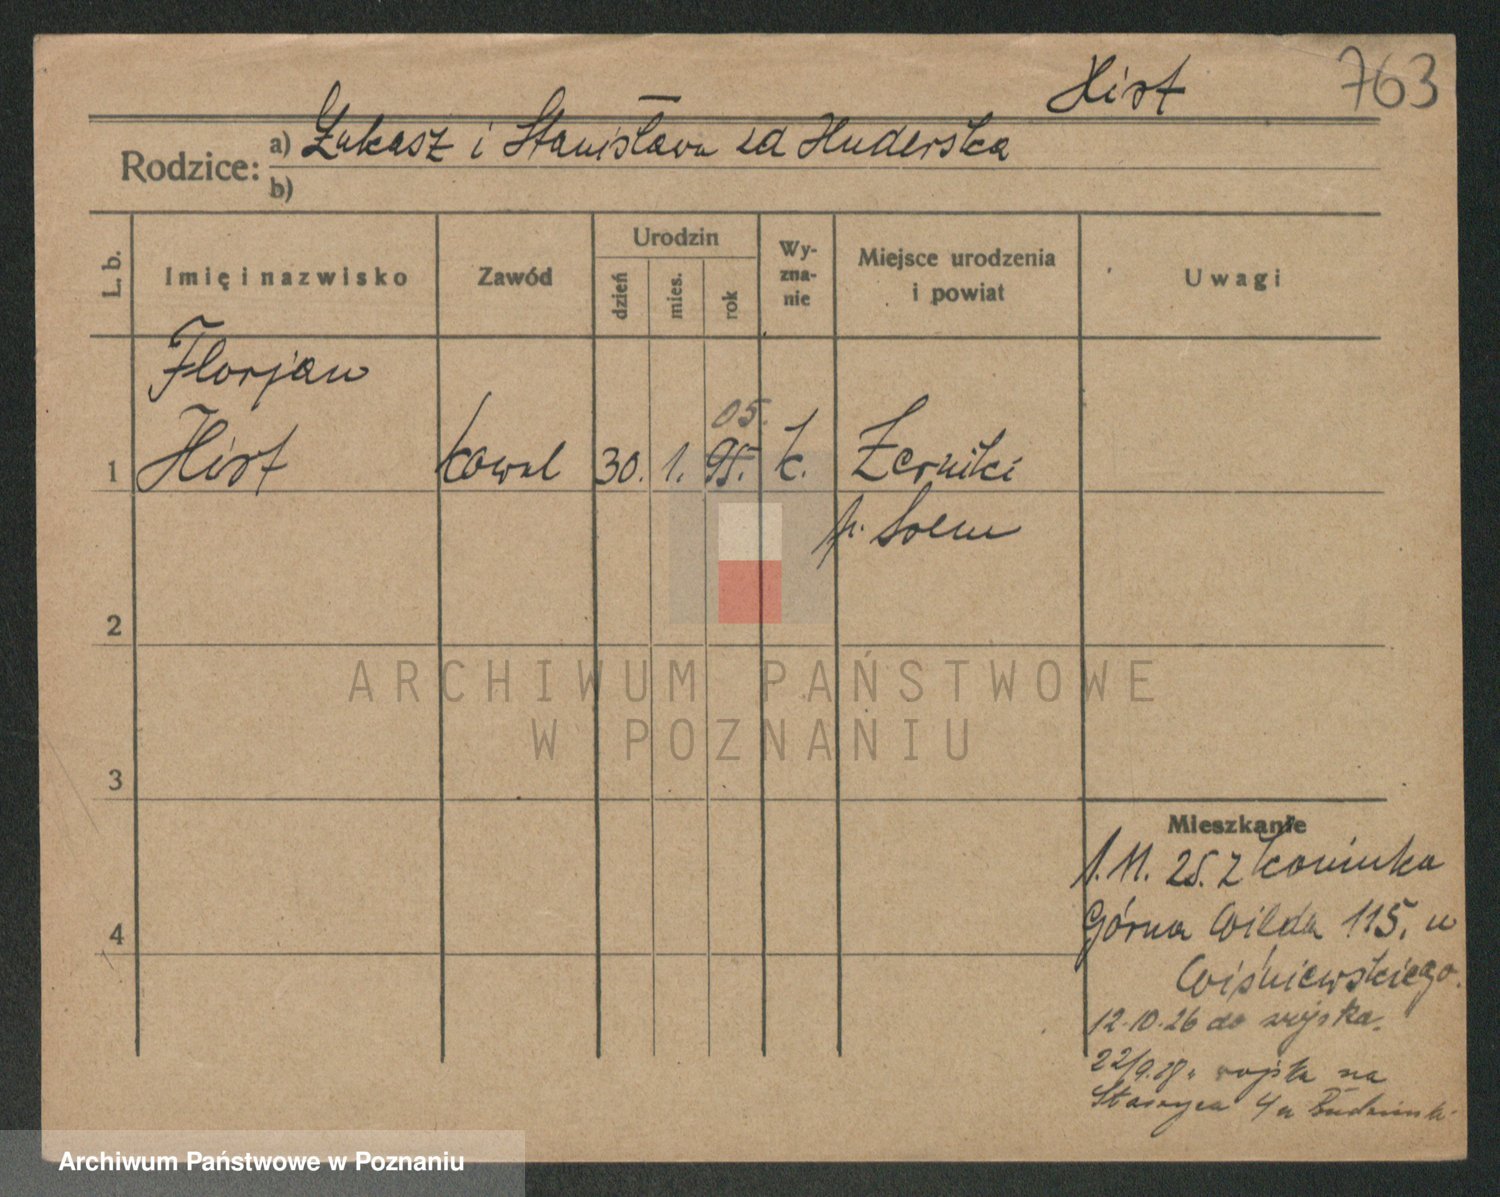 Hist 763
Rodzice: a) Łukasz i Stanisława zd Huderska
b)
L. b. Imię i nazwisko Zawód Urodzin dzień mies. rok Wy-zna-nie Miejsce urodzenia i powiat Uwagi
Florjan
05.
1 Hist kowal 30. 1. 95. k. Żerniki
p.
2
3
4
Mieszkanie
1.11. 25. z
Górna Wilda 115. u
Wiśniewskiego.
12.10.26 do wojska.
wojska na
ARCHIWUM PAŃSTWOWE
W POZNANIU
Archiwum Państwowe w Poznaniu